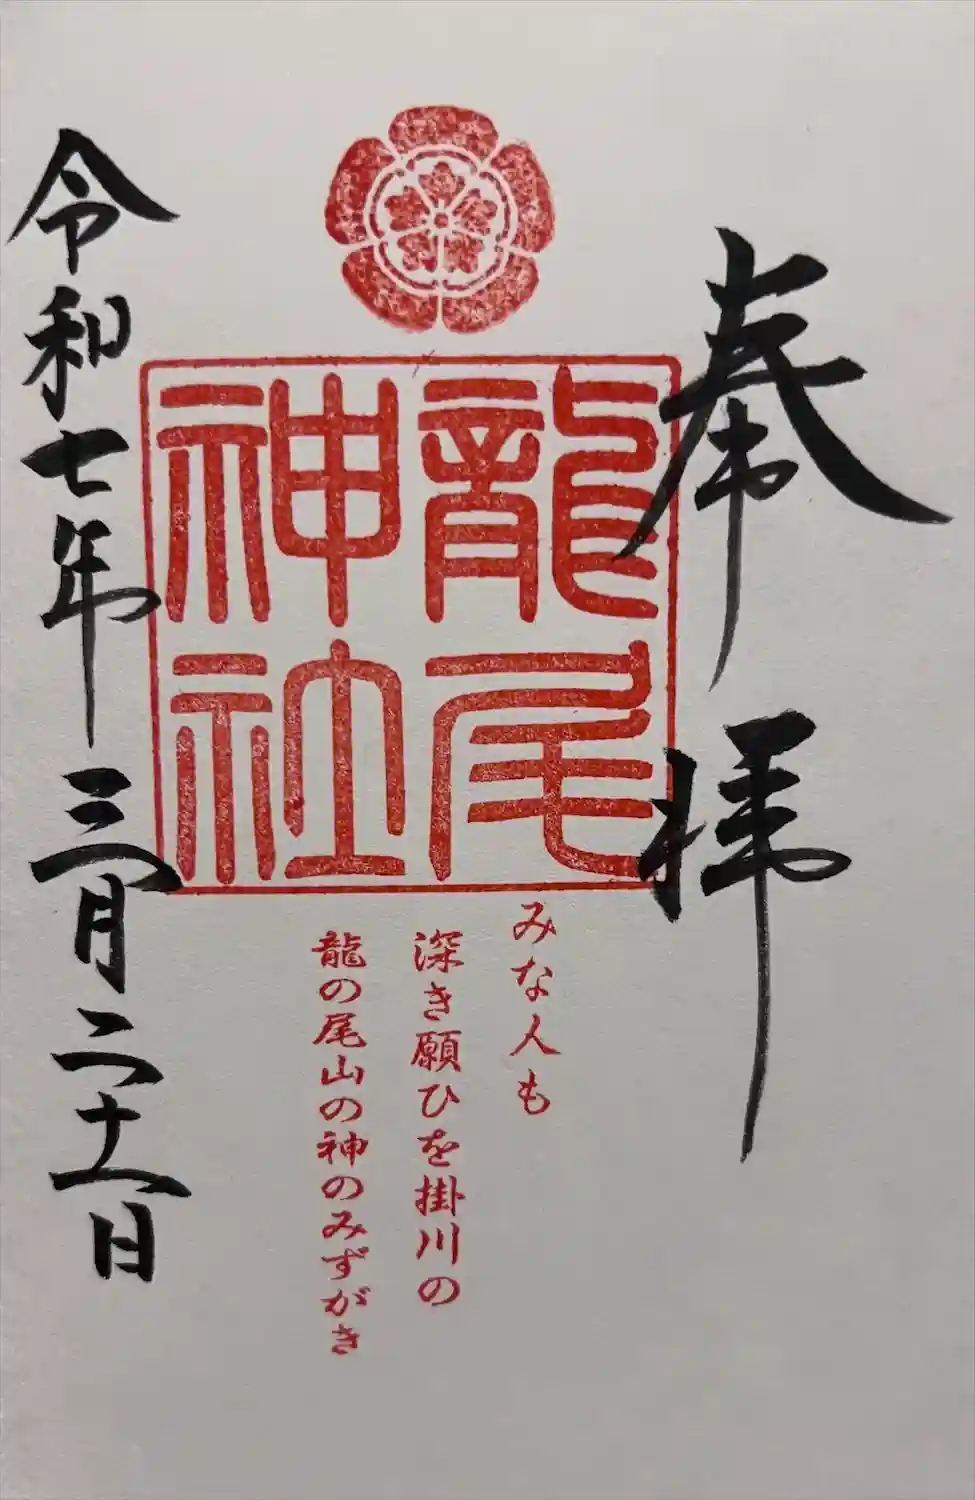 奉拝
龍尾
神社
みな人も
深き願ひを掛川の
龍の尾山の神のみずがき
令和七年三月二十一日